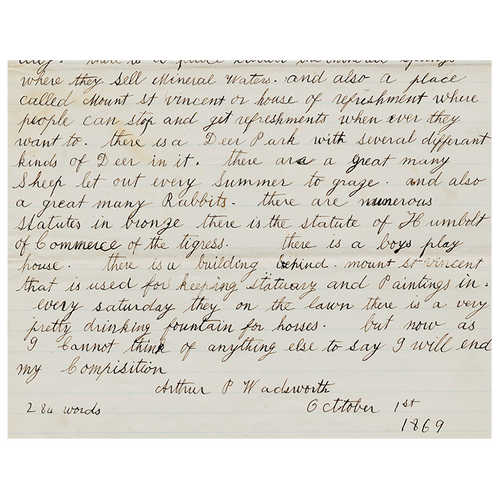 where they sell Mineral Waters. and also a place
called Mount st vincent or house of refreshment where
people can stop and get refreshments when ever they
want to. there is a Deer Park with several differant
kinds of Deer in it. there are a great many
Sheep let out every Summer to graze. and also
a great many Rabbits. there are numerous
Statutes in bronze there is the statute of Humbolt
of Commerce of the tigress. there is a boys play
house. there is a building behind mount st vincent
that is used for keeping Statuary and Paintings in.
every saturday they on the lawn there is a very
pretty drinking fountain for horses. but now as
I Cannot think of anything else to say I will end
my Compisition
Arthur P Wadsworth
284 words October 1st
1869